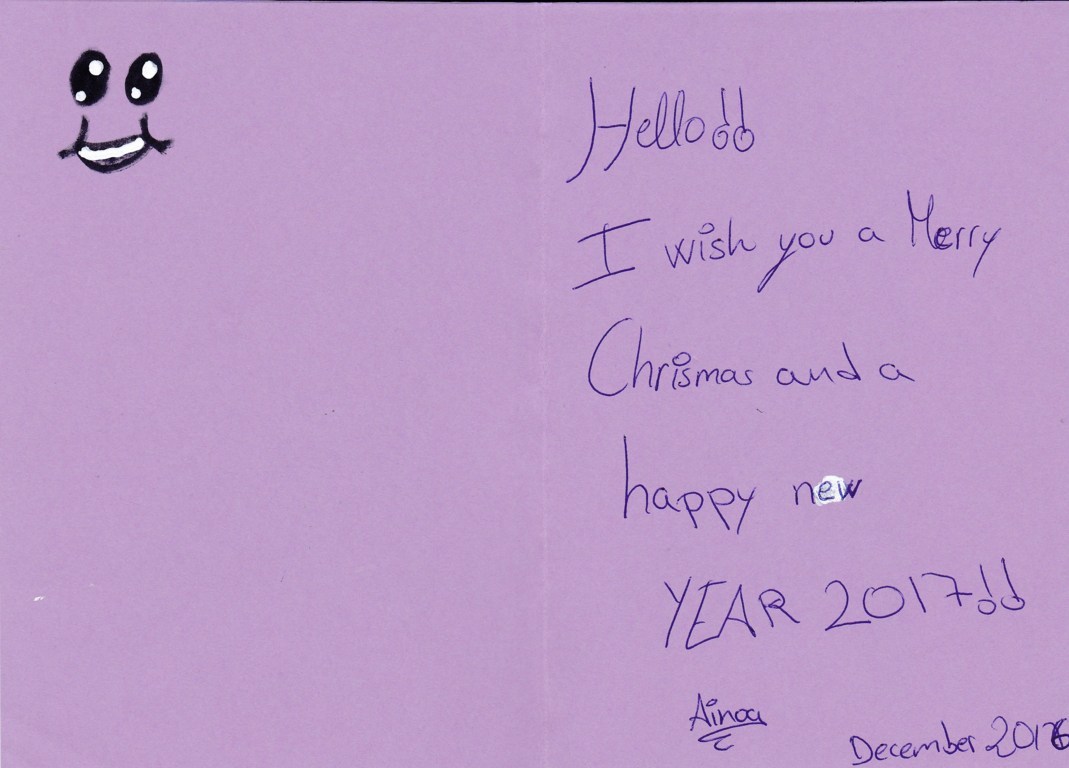 Hello!!
I wish you a Merry
Chrismas and a
happy new
YEAR 2017!!
Ainoa
December 2016